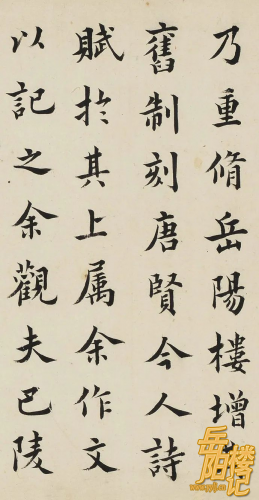 乃重脩岳陽樓增
舊制刻唐賢今人詩
賦於其上属余作文
以記之余觀夫巴陵
岳阳楼记